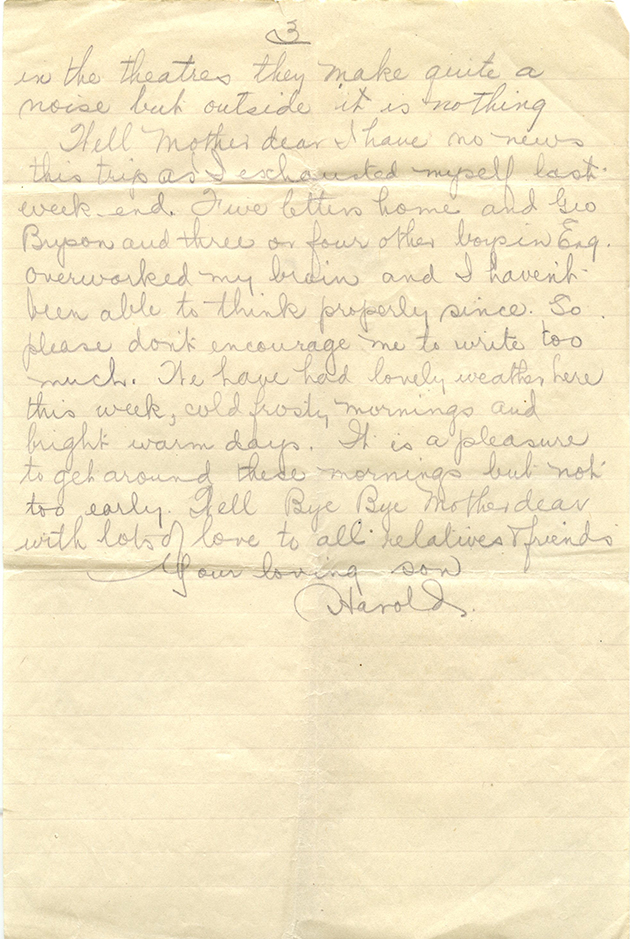 3
in the theatres they make quite a
noise but outside it is nothing
Well Mother dear I have no news
this trip as I exhausted myself last
week-end. Five letters home and Geo
Bryson and three or four other boys in Eng.
overworked my brain and I haven't
been able to think properly since. So
please don't encourage me to write too
much. We have had lovely weather here
this week, cold frosty mornings and
bright warm days. It is a pleasure
to get around these mornings but not
too early. Well Bye Bye Mother dear
with lots of love to all relatives & friends
Your loving son
Harold.